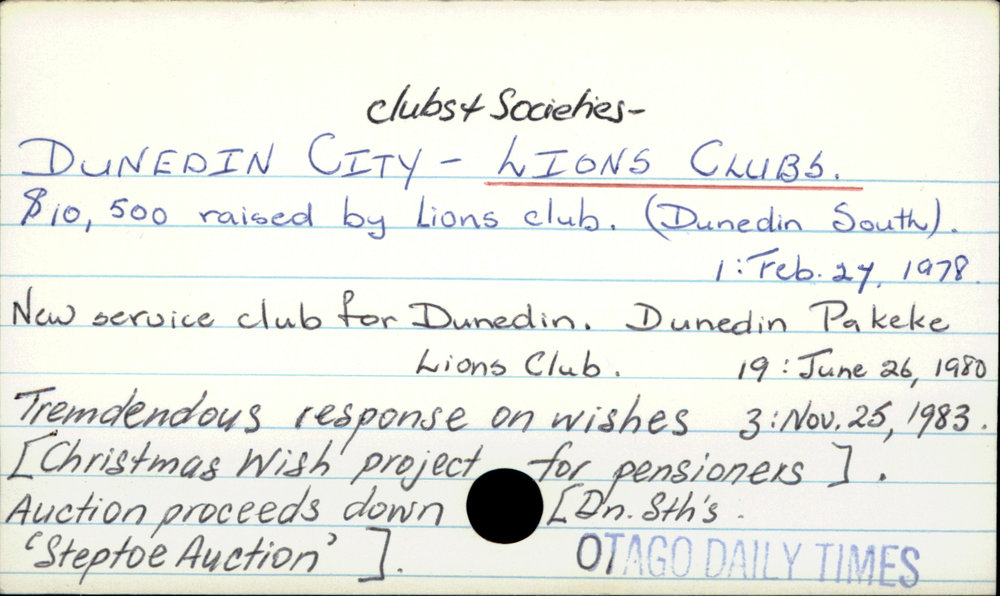 Clubs & Societies-
DUNEDIN CITY - LIONS CLUBS.
$10,500 raised by Lions club. (Dunedin South).
1: Feb. 27, 1978.
New service club for Dunedin. Dunedin Pakeke
Lions Club. 19: June 26, 1980
Tremdendous response on wishes 3: Nov. 25, 1983.
[Christmas Wish project for pensioners].
Auction proceeds down [Dn. Sth's.
'Steptoe Auction'].
OTAGO DAILY TIMES